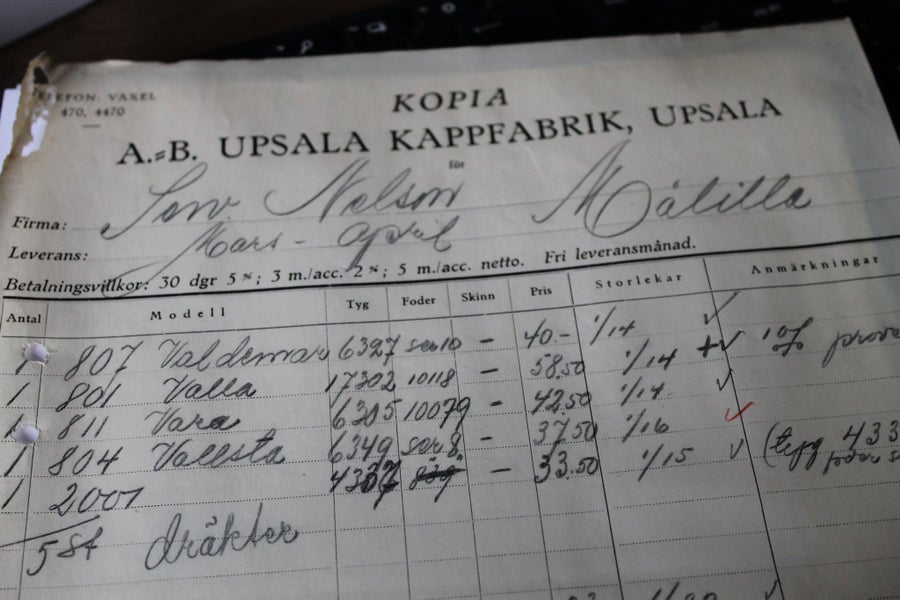 TELEFON: VÄXEL
470, 4470
KOPIA
A.-B. UPSALA KAPPFABRIK, UPSALA
för
Firma: Nelson Målilla
Leverans: Mars - April
Betalningsvillkor: 30 dgr 5 %; 3 m./acc. 2 %; 5 m./acc. netto. Fri leveransmånad.
Antal Modell Tyg Foder Skinn Pris Storlekar Anmärkningar
1 807 Valdemar 6327 - 40.- 1/14
1 801 Valla 17302 10118 - 58.50 1/14
1 811 Vara 6305 10079 - 42.50 1/14
1 804 Vallsta 6349 - 37.50 1/16
1 2001 - 33.50 1/15 (tyg 433
5 st dräkter